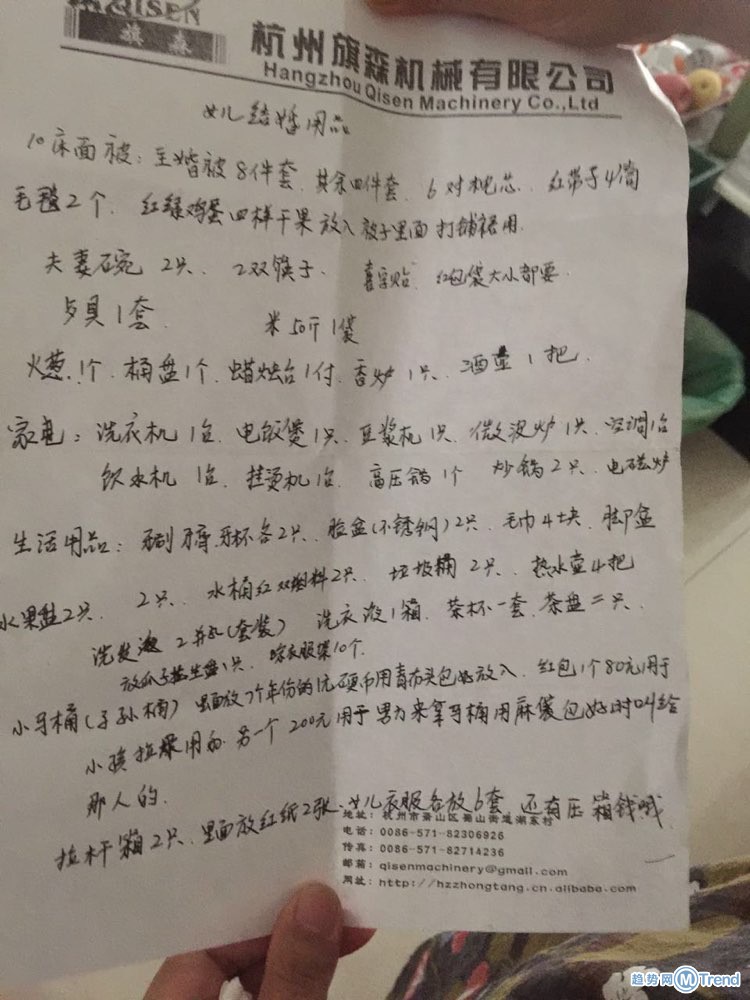 QISEN
旗森
杭州旗森机械有限公司
Hangzhou Qisen Machinery Co.,Ltd
女儿结婚用品
10床面被：主婚被8件套、其余四件套、6对枕芯、红带子4筒
毛毯2个、红绿鸡蛋四样干果放入被子里面打铺裙用
夫妻碗2只、2双筷子、喜字贴、红包袋大小都要
1套 米50斤1袋
火葱1个、桶盘1个、蜡烛台1付、香炉1只、酒壶1把、
家电：洗衣机1台、电饭煲1只、豆浆机1只、微波炉1只、空调1台
饮水机1台、挂烫机1台、高压锅1个 炒锅2只、电磁炉
生活用品：牙刷牙膏牙杯各2只、脸盆(不锈钢)2只、毛巾4块、脚盆
水果盘2只 2只、水桶红双塑料2只、垃圾桶2只、热水壶4把
洗发液2瓶(套装) 洗衣液1箱、茶杯一套、茶盘二只、
放瓜子盘1只、晾衣服架10个
小马桶(子孙桶)里面放7个年份的1元硬币用青布头包好放入、红包1个80元用于
小孩拉尿用的另一个200元用于男方来拿马桶用麻袋包好时叫给
那人的、
拉杆箱2只、里面放红纸2张、女儿衣服各放6套 还有压箱钱哦
地址：杭州市萧山区萧山街道湖东村
电话：0086-571-82306926
传真：0086-571-82714236
邮箱：qisenmachinery@gmail.com
网址：http://hzzhongtang.cn.alibaba.com
趋势网 M Trend